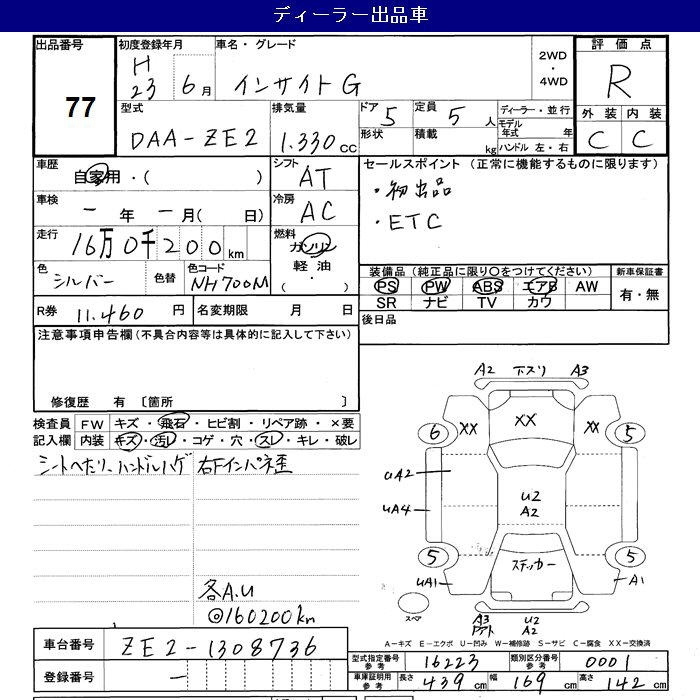 ディーラー出品車
出品番号
77
初度登録年月
H
23 6月
車名・グレード
インサイト G
2WD
・
4WD
評価点
R
外装 内装
C C
型式
DAA-ZE2
排気量
1.330 cc
ドア 5
定員 5 人
形状
積載 kg
ディーラー・並行
モデル年式 年
ハンドル 左・右
車歴
自家用・( )
シフト
AT
車検
一 年 一 月( 日)
冷房
AC
走行
16万0千200km
燃料
ガソリン
軽油
・( )
色
シルバー
色替
色コード
NH700M
セールスポイント (正常に機能するものに限ります)
・初出品
・ETC
装備品 (純正品に限り○をつけてください)
PS PW ABS エアB AW
SR ナビ TV カワ
新車保証書
有・無
後日品
R券 11.460 円
名変期限 月 日
注意事項申告欄(不具合内容等は具体的に記入して下さい)
修復歴 有 〔箇所 〕
検査員 FW キズ・飛石・ヒビ割・リペア跡・×要
記入欄 内装 キズ・汚れ・コゲ・穴・スレ・キレ・破レ
シートヘたり、ハンドルハゲ 右Fインパネ歪
各A.U
◎160200km
A2 下スリ A3
XX
6 XX XX 5
UA2
UA4
U2
A2
5 5
ステッカー
UA1 A1
スペア
A3 U2
A2
A−キズ E−エクボ U−凹み W−補修跡 S−サビ C−腐食 XX−交換済
車台番号 ZE2-1308736
登録番号 −
型式指定番号
参考
16223
類別区分番号
参考
0001
車庫証明用
参考
長さ 439 cm 幅 169 cm 高さ 142 cm